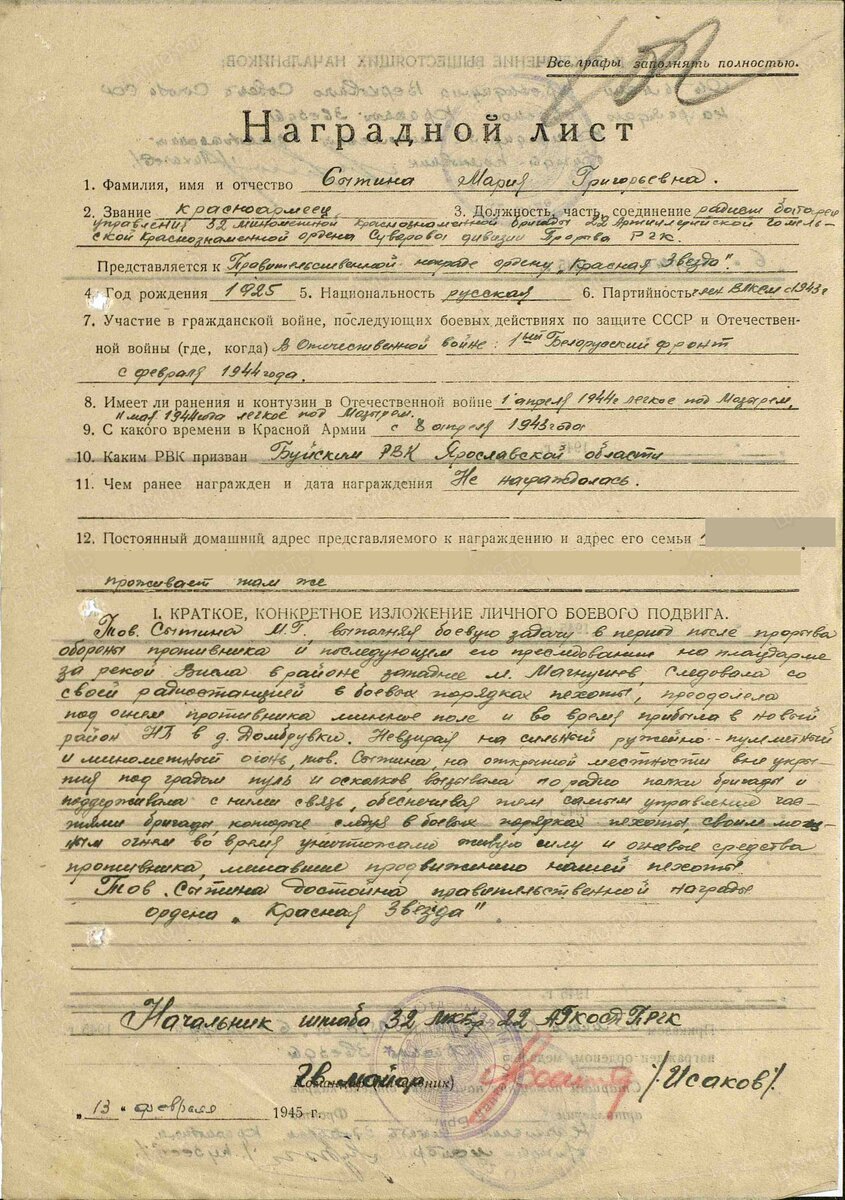 Все графы заполнять полностью.
Наградной лист
1. Фамилия, имя и отчество Сытина Мария Григорьевна.
2. Звание красноармеец 3. Должность, часть, соединение радист батареи
управления 32 минометной Краснознаменной бригады 22 Артиллерийской Гомель-
ской Краснознаменной ордена Суворова дивизии Прорыва РГК.
Представляется к Правительственной награде ордену „Красная Звезда".
4. Год рождения 1925 5. Национальность русская 6. Партийность член ВЛКСМ с 1943г
7. Участие в гражданской войне, последующих боевых действиях по защите СССР и Отечествен-
ной войны (где, когда) В Отечественной войне: 1ый Белорусский фронт
с февраля 1944 года.
8. Имеет ли ранения и контузии в Отечественной войне 1 апреля 1944г легкое под Мозырем,
11 мая 1944 года легкое под Мозырем.
9. С какого времени в Красной Армии с 8 апреля 1943 года
10. Каким РВК призван Буйским РВК Ярославской области
11. Чем ранее награжден и дата награждения Не награждалась.
12. Постоянный домашний адрес представляемого к награждению и адрес его семьи
проживает там же
I. КРАТКОЕ, КОНКРЕТНОЕ ИЗЛОЖЕНИЕ ЛИЧНОГО БОЕВОГО ПОДВИГА.
Тов. Сытина М.Г., выполняя боевую задачу в период после прорыва
обороны противника и последующем его преследовании на плацдарме
за рекой Висла в районе западнее м. Магнушев, следовала со
своей радиостанцией в боевых порядках пехоты, преодолела
под огнем противника минное поле и во время прибыла в новый
район НП в д. Домбрувки. Невзирая на сильный ружейно-пулеметный
и минометный огонь, тов. Сытина, на открытой местности вне укры-
тия под градом пуль и осколков, вызывала по радио полки бригады и
поддерживала с ними связь, обеспечивая тем самым управление час-
тями бригады, которые следуя в боевых порядках пехоты, своим мощ-
ным огнем во время уничтожали живую силу и огневые средства
противника, мешавшие продвижению нашей пехоты.
Тов. Сытина достойна правительственной награды
ордена „Красная Звезда".
Начальник штаба 32 мкбр 22 АГКОСД ПРГК
гв майор /Исаков/
„13" февраля 1945 г.